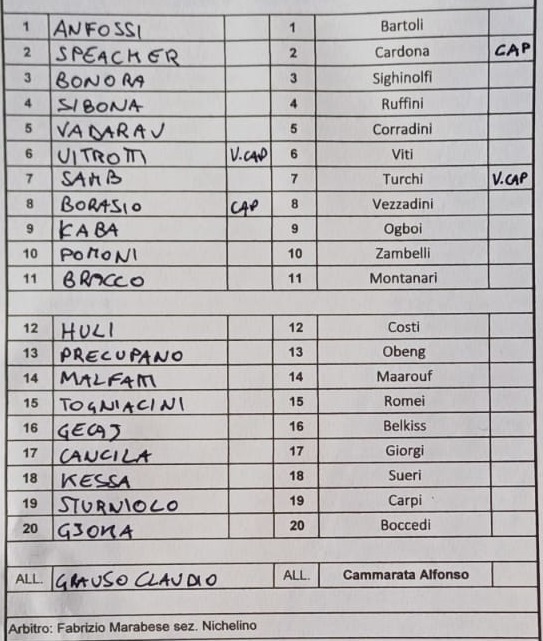 1 ANFOSSI 1 Bartoli
2 SPEACHER 2 Cardona CAP
3 BONORA 3 Sighinolfi
4 SIBONA 4 Ruffini
5 VADARAU 5 Corradini
6 VITROTTI V.CAP 6 Viti
7 SAMB 7 Turchi V.CAP
8 BORASIO CAP 8 Vezzadini
9 KABA 9 Ogboi
10 POMONI 10 Zambelli
11 BROCCO 11 Montanari
12 HULI 12 Costi
13 PRECUPANO 13 Obeng
14 MALFATTI 14 Maarouf
15 TOGNIACINI 15 Romei
16 GECAJ 16 Belkiss
17 CANCILA 17 Giorgi
18 KESSA 18 Sueri
19 STURNIOLO 19 Carpi
20 GJOKA 20 Boccedi
ALL. GRAUSO CLAUDIO ALL. Cammarata Alfonso
Arbitro: Fabrizio Marabese sez. Nichelino